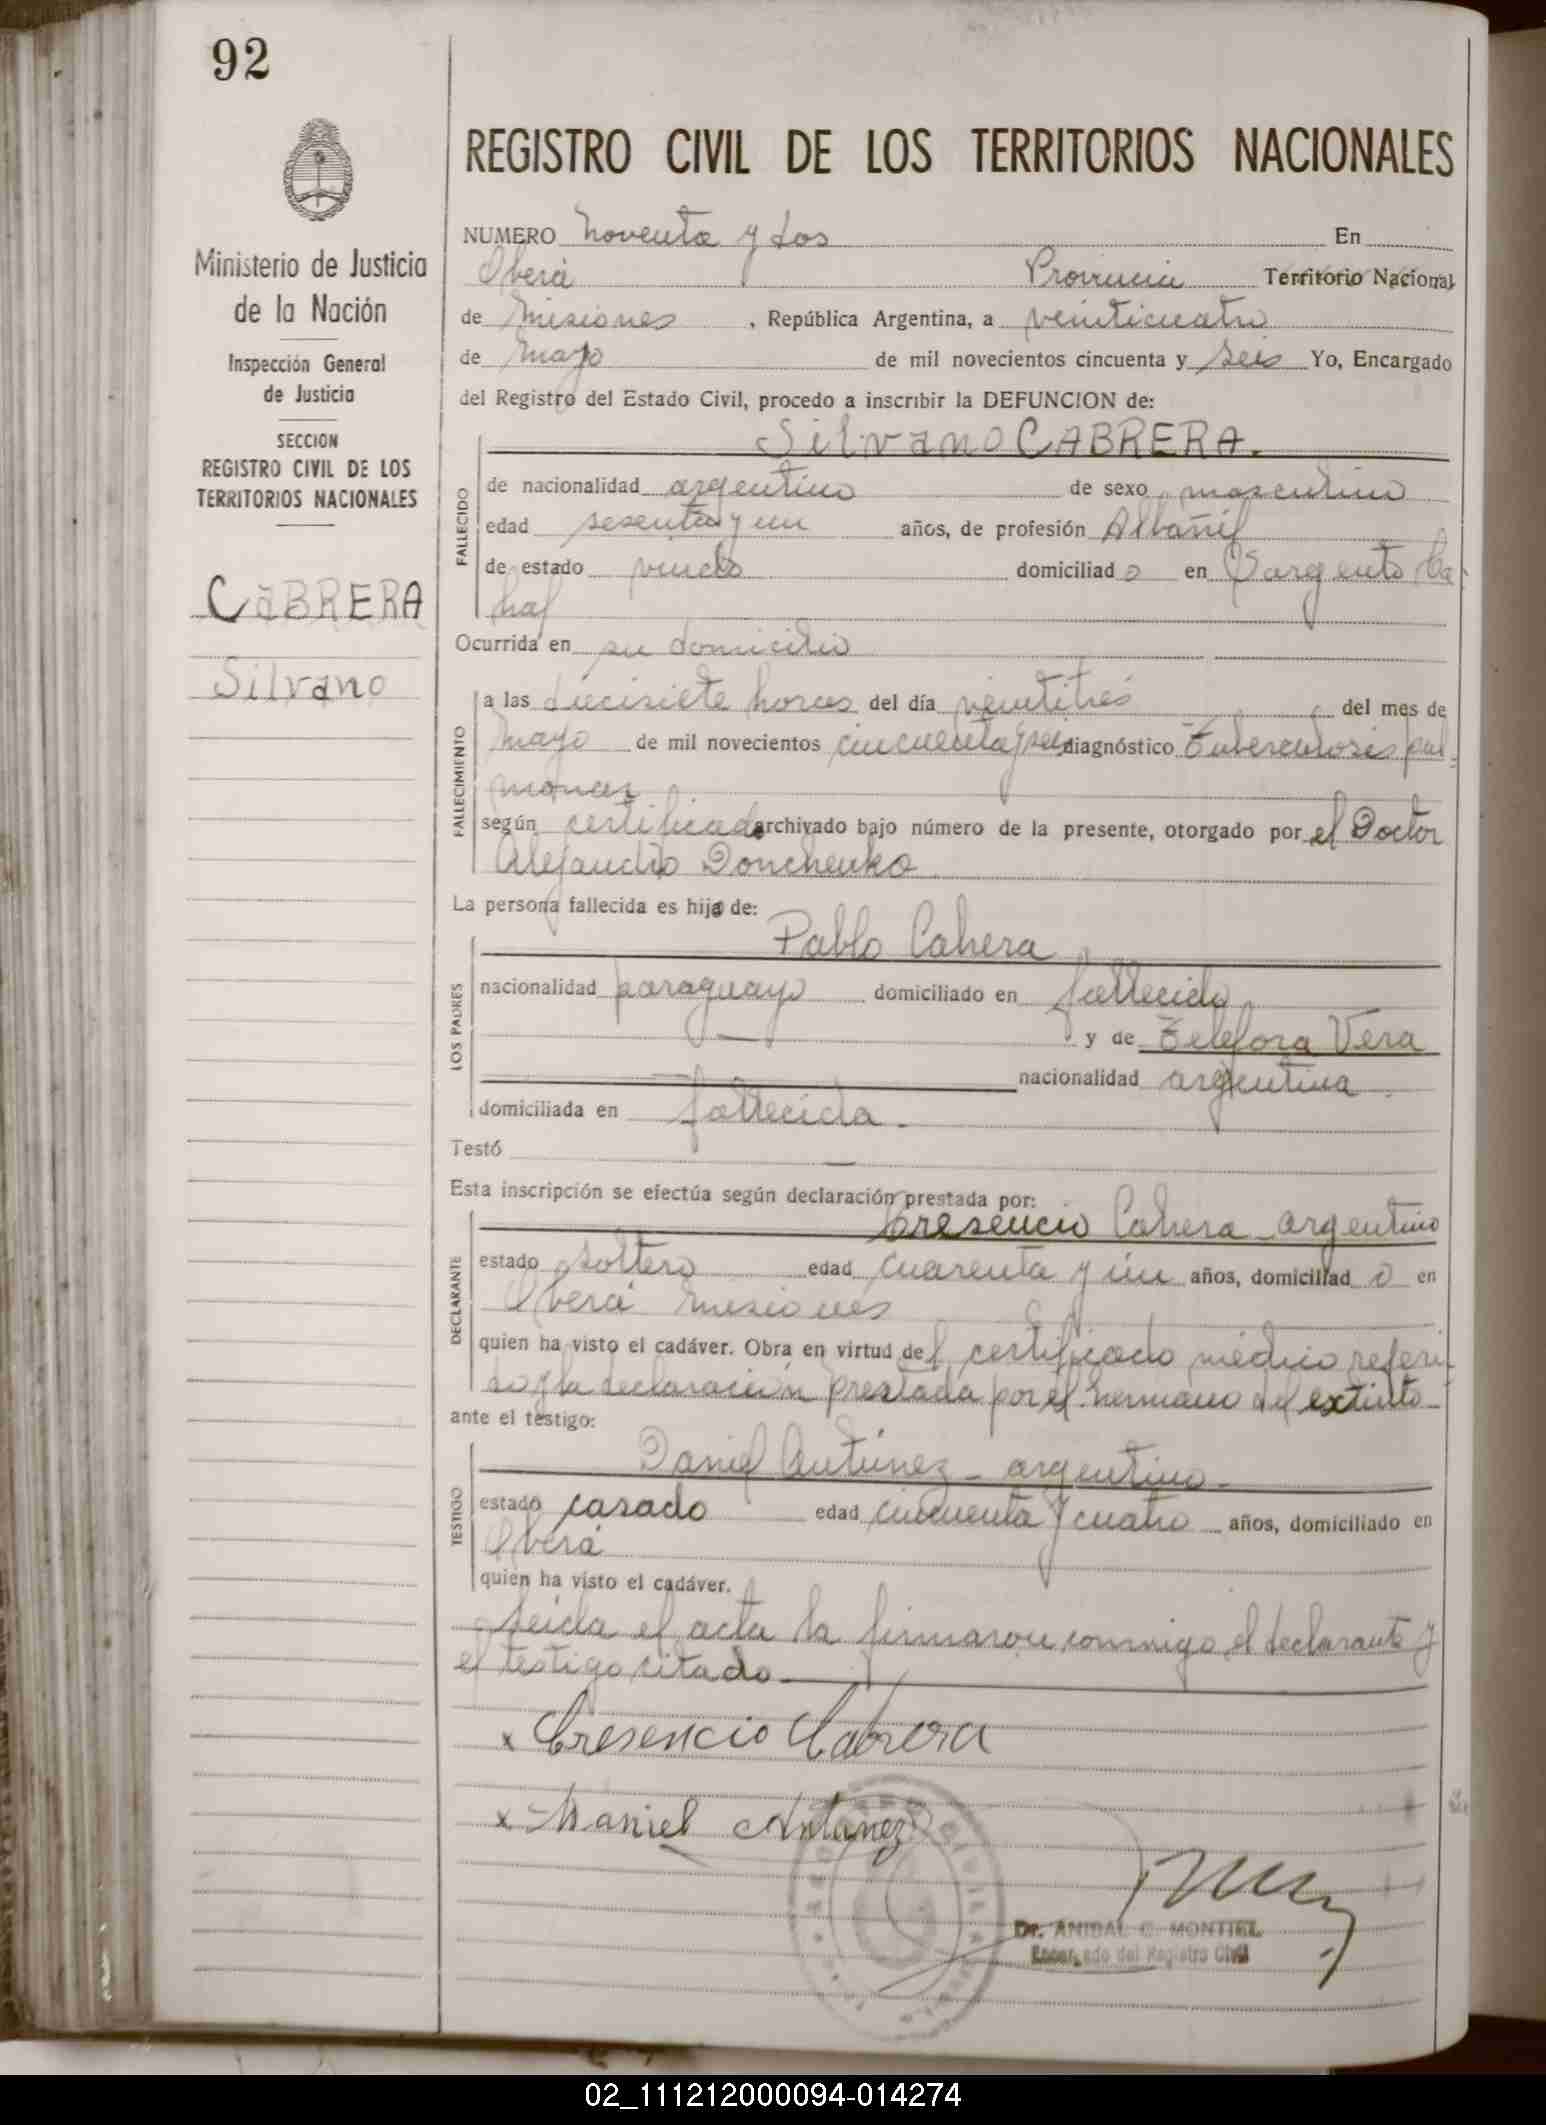 92
REGISTRO CIVIL DE LOS TERRITORIOS NACIONALES
Ministerio de Justicia
de la Nación
Inspección General
de Justicia
SECCION
REGISTRO CIVIL DE LOS
TERRITORIOS NACIONALES
CABRERA
Silvano
NUMERO Noventa y dos En
Oberá Provincia Territorio Nacional
de Misiones, República Argentina, a veinticuatro
de Mayo de mil novecientos cincuenta y seis Yo, Encargado
del Registro del Estado Civil, procedo a inscribir la DEFUNCION de:
Silvano CABRERA.
FALLECIDO
de nacionalidad argentino de sexo masculino
edad sesenta y un años, de profesión Albañil
de estado viudo domiciliado en Sargento Ca
bral
Ocurrida en su domicilio
FALLECIMIENTO
a las diecisiete horas del día veintitrés del mes de
Mayo de mil novecientos cincuenta y seis diagnóstico Tuberculosis pul
monar
según certificado archivado bajo número de la presente, otorgado por el Doctor
Alejandro Donchenko
La persona fallecida es hijo de:
LOS PADRES
Pablo Cabrera
nacionalidad paraguayo domiciliado en fallecido
y de Telefora Vera
nacionalidad argentina.
domiciliada en fallecida.
Testó —
Esta inscripción se efectúa según declaración prestada por:
DECLARANTE
Cresencio Cabrera - argentino
estado soltero edad cuarenta y un años, domiciliado en
Oberá Misiones
quien ha visto el cadáver. Obra en virtud del certificado médico referi
do y la declaración prestada por el hermano del extinto
ante el testigo:
TESTIGO
Daniel Antúnez - argentino -
estado casado edad cincuenta y cuatro años, domiciliado en
Oberá
quien ha visto el cadáver.
Leída el acta la firmaron conmigo el declarante y
el testigo citado
x Cresencio Cabrera
x Daniel Antunez
Dr. ANIBAL C. MONTIEL
Encargado del Registro Civil
02_111212000094-014274